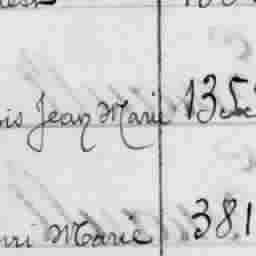 is Jean Marie 135
nri Marie 381